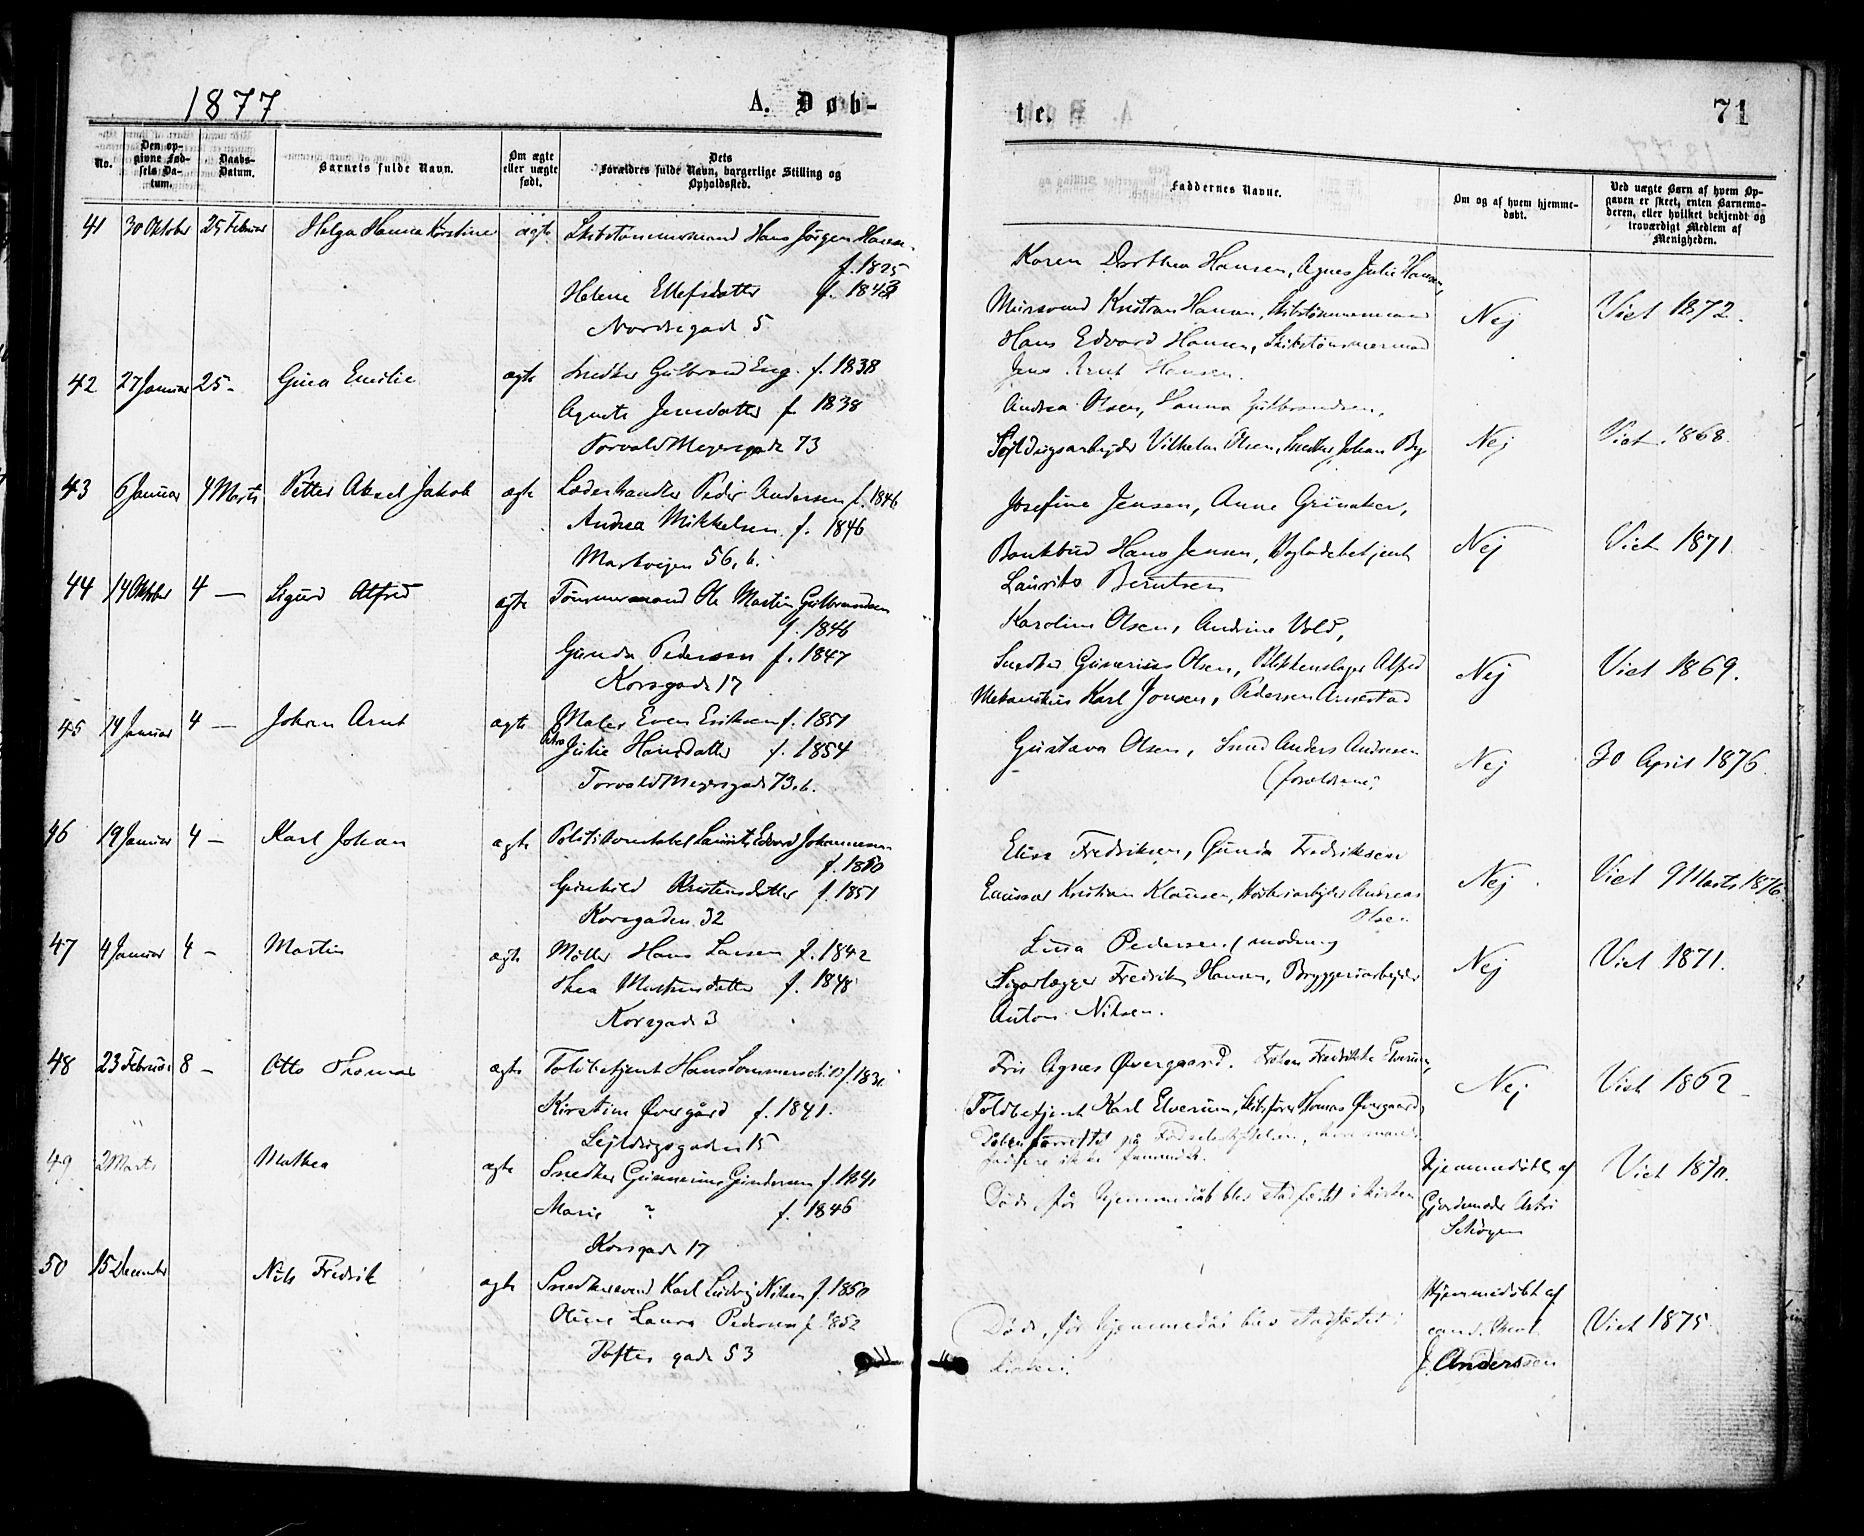 1877
A. Døb-
No.
Den op-
givne Fød-
sels Da-
tum.
Daabs-
Datum.
Barnets fulde Navn.
Om ægte
eller uægte
født.
Dets
Forældres fulde Navn, borgerlige Stilling og
Opholdssted.
41 30 Oktober 25 Februar Helga Hanna Kirstine ægte Skibstømmermand Hans Jørgen Hansen
f. 1825
Helene Ellefsdatter f. 1843
Nordregade 5
42 27 Januar 25 - Gina Emilie ægte Snedker Gulbrand Eng. f. 1838
Agnete Jensdatter f. 1838
Torvald Meyersgade 73
43 6 Januar 4 Marts Petter Aksel Jakob ægte Læderhandler Peder Andersen f. 1846
Andrea Mikkelsen f. 1846
Markvejen 56, b.
44 14 Oktober 4 — Sigurd Alfred ægte Tømmermand Ole Martin Gulbrandsen
f. 1846
Gunda Pedersen f. 1847
Korsgade 17
45 14 Januar 4 — Johan Arnt ægte Maler Even Eriksen f. 1851
Julie Hansdatter f. 1854
Torvald Meyersgade 73, b.
46 19 Januar 4 — Karl Johan ægte Politikonstabel Laurits Edvard Johannesen
f. 1850
Gunhild Kristensdatter f. 1851
Korsgaden 32
47 4 Januar 4 - Martin ægte Møller Hans Larsen f. 1842
Thea Mortensdatter f. 1848
Korsgade 3
48 23 Februar 8 - Otto Thomas ægte Toldbetjent Hans
Kirstine Øvergård f. 1841.
Sejldugsgaden 15
49 2 Marts Mathea ægte Snedker Gunnerius Gundersen f. 1841
Marie ? f. 1846
Korsgade 17
50 15 December Nils Fredrik ægte Snedkersvend Karl Ludvig Nilsen f. 1850
Oline Laura Pedersen f. 1852
Toftes gade 53
te.
71
Faddernes Navne.
Om og af hvem hjemme-
døbt.
Ved uægte Børn af hvem Op-
gaven er skeet, enten Barnemo-
deren, eller hvilket bekjendt og
troværdigt Medlem af
Menigheden.
Karen Dorthea Hansen, Agnes Julie Hansen,
Mursvend Kristian Hansen, Skibstømmermand Nej Viet 1872.
Hans Edvard Hansen, Skibstømmermand
Jens Knut Hansen.
Andrea Olsen, Hanna Gulbrandsen,
Sejldugsarbejder Vilhelm Olsen, Snedker Johan Nej Viet 1868.
Josefine Jensen, Anne Grinaker,
Bankbud Hans Jensen, Nej Viet 1871
Laurits Berntsen
Karoline Olsen, Andrine Vold,
Snedker Gunerius Olsen, Blikkenslager Alfred Nej Viet 1869.
Mekanikus Karl Jonsen, Pedersen Arnestad
Gustava Olsen, Smed Anders Andresen Nej 30 April 1876.
(forældrene)
Elise Fredriksen, Gunda Fredriksen
Kristian Klausen, Andreas Nej Viet 9 Marts 1876.
Olsen
Lina Pedersen (moderen)
Sigarlægger Fredrik Hansen, Bryggeriarbejder Nej Viet 1871.
Anton Nilsen.
Fru Agnes Øvergaard. Frøken Fredrikke Elverum,
Toldbetjent Karl Elverum, Skibsfører Thomas Øvergaard, Nej Viet 1862
Dåben forrettet på Fødselsstiftelsen,
faddere ikke
Døde, før hjemmedåb blev stadfæstet i kirken Hjemmedøbt af Viet 1870.
Gjordemoder Astri
Schøyen
Døde, før hjemmedåb blev stadfæstet i Hjemmedøbt af
kirken. cand. theol. Viet 1875
J. Anderssen